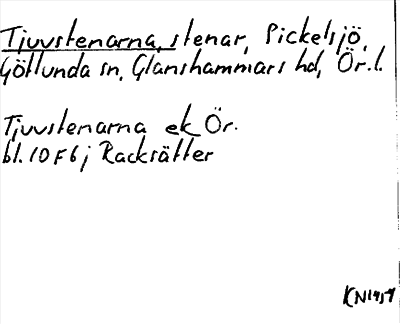 Tjuvstenarna, stenar, Pickelsjö,
Götlunda sn, Glanshammars hd, Ör. l.
Tjuvstenarna ek Ör.
bl. 10 F 6 j Racksätter